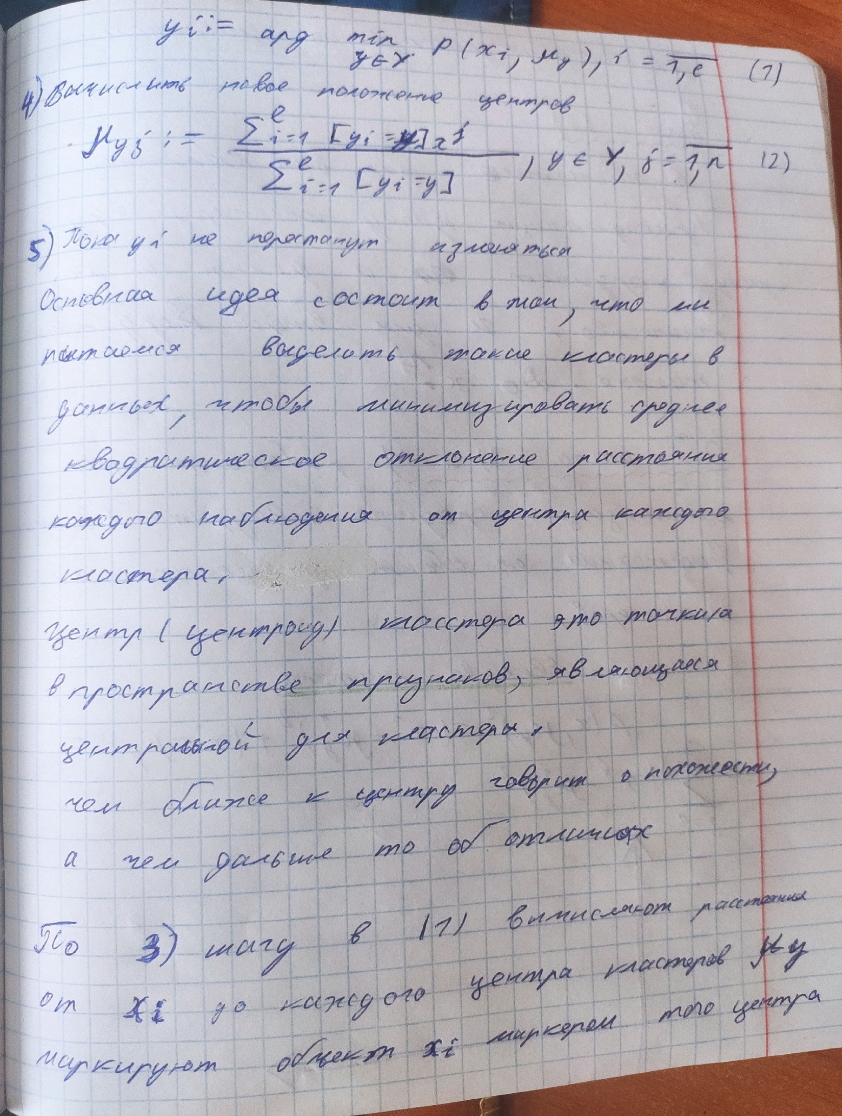 yi := арg min y∈Y ρ(xi, μy), i = 1,e (1)
4) Вычислить новое положение центров
μyj := ∑ e i=1 [yi = y] x j / ∑ e i=1 [yi = y], y ∈ Y, j = 1,n (2)
5) Пока yi не перестанут изменяться
Основная идея состоит в том, что мы
пытаемся выделить такие кластеры в
данных, чтобы минимизировать среднее
квадратическое отклонение расстояния
каждого наблюдения от центра каждого
кластера.
Центр (центроид) класстера это точки/а
в пространстве признаков, являющаяся
центральной для кластеры.
чем ближе к центру говорит о похожести,
а чем дальше то об отличиях
По 3) шагу в (1) вычисляют расстояния
от xi до каждого центра кластеров μy
маркируют объект xi маркером того центра